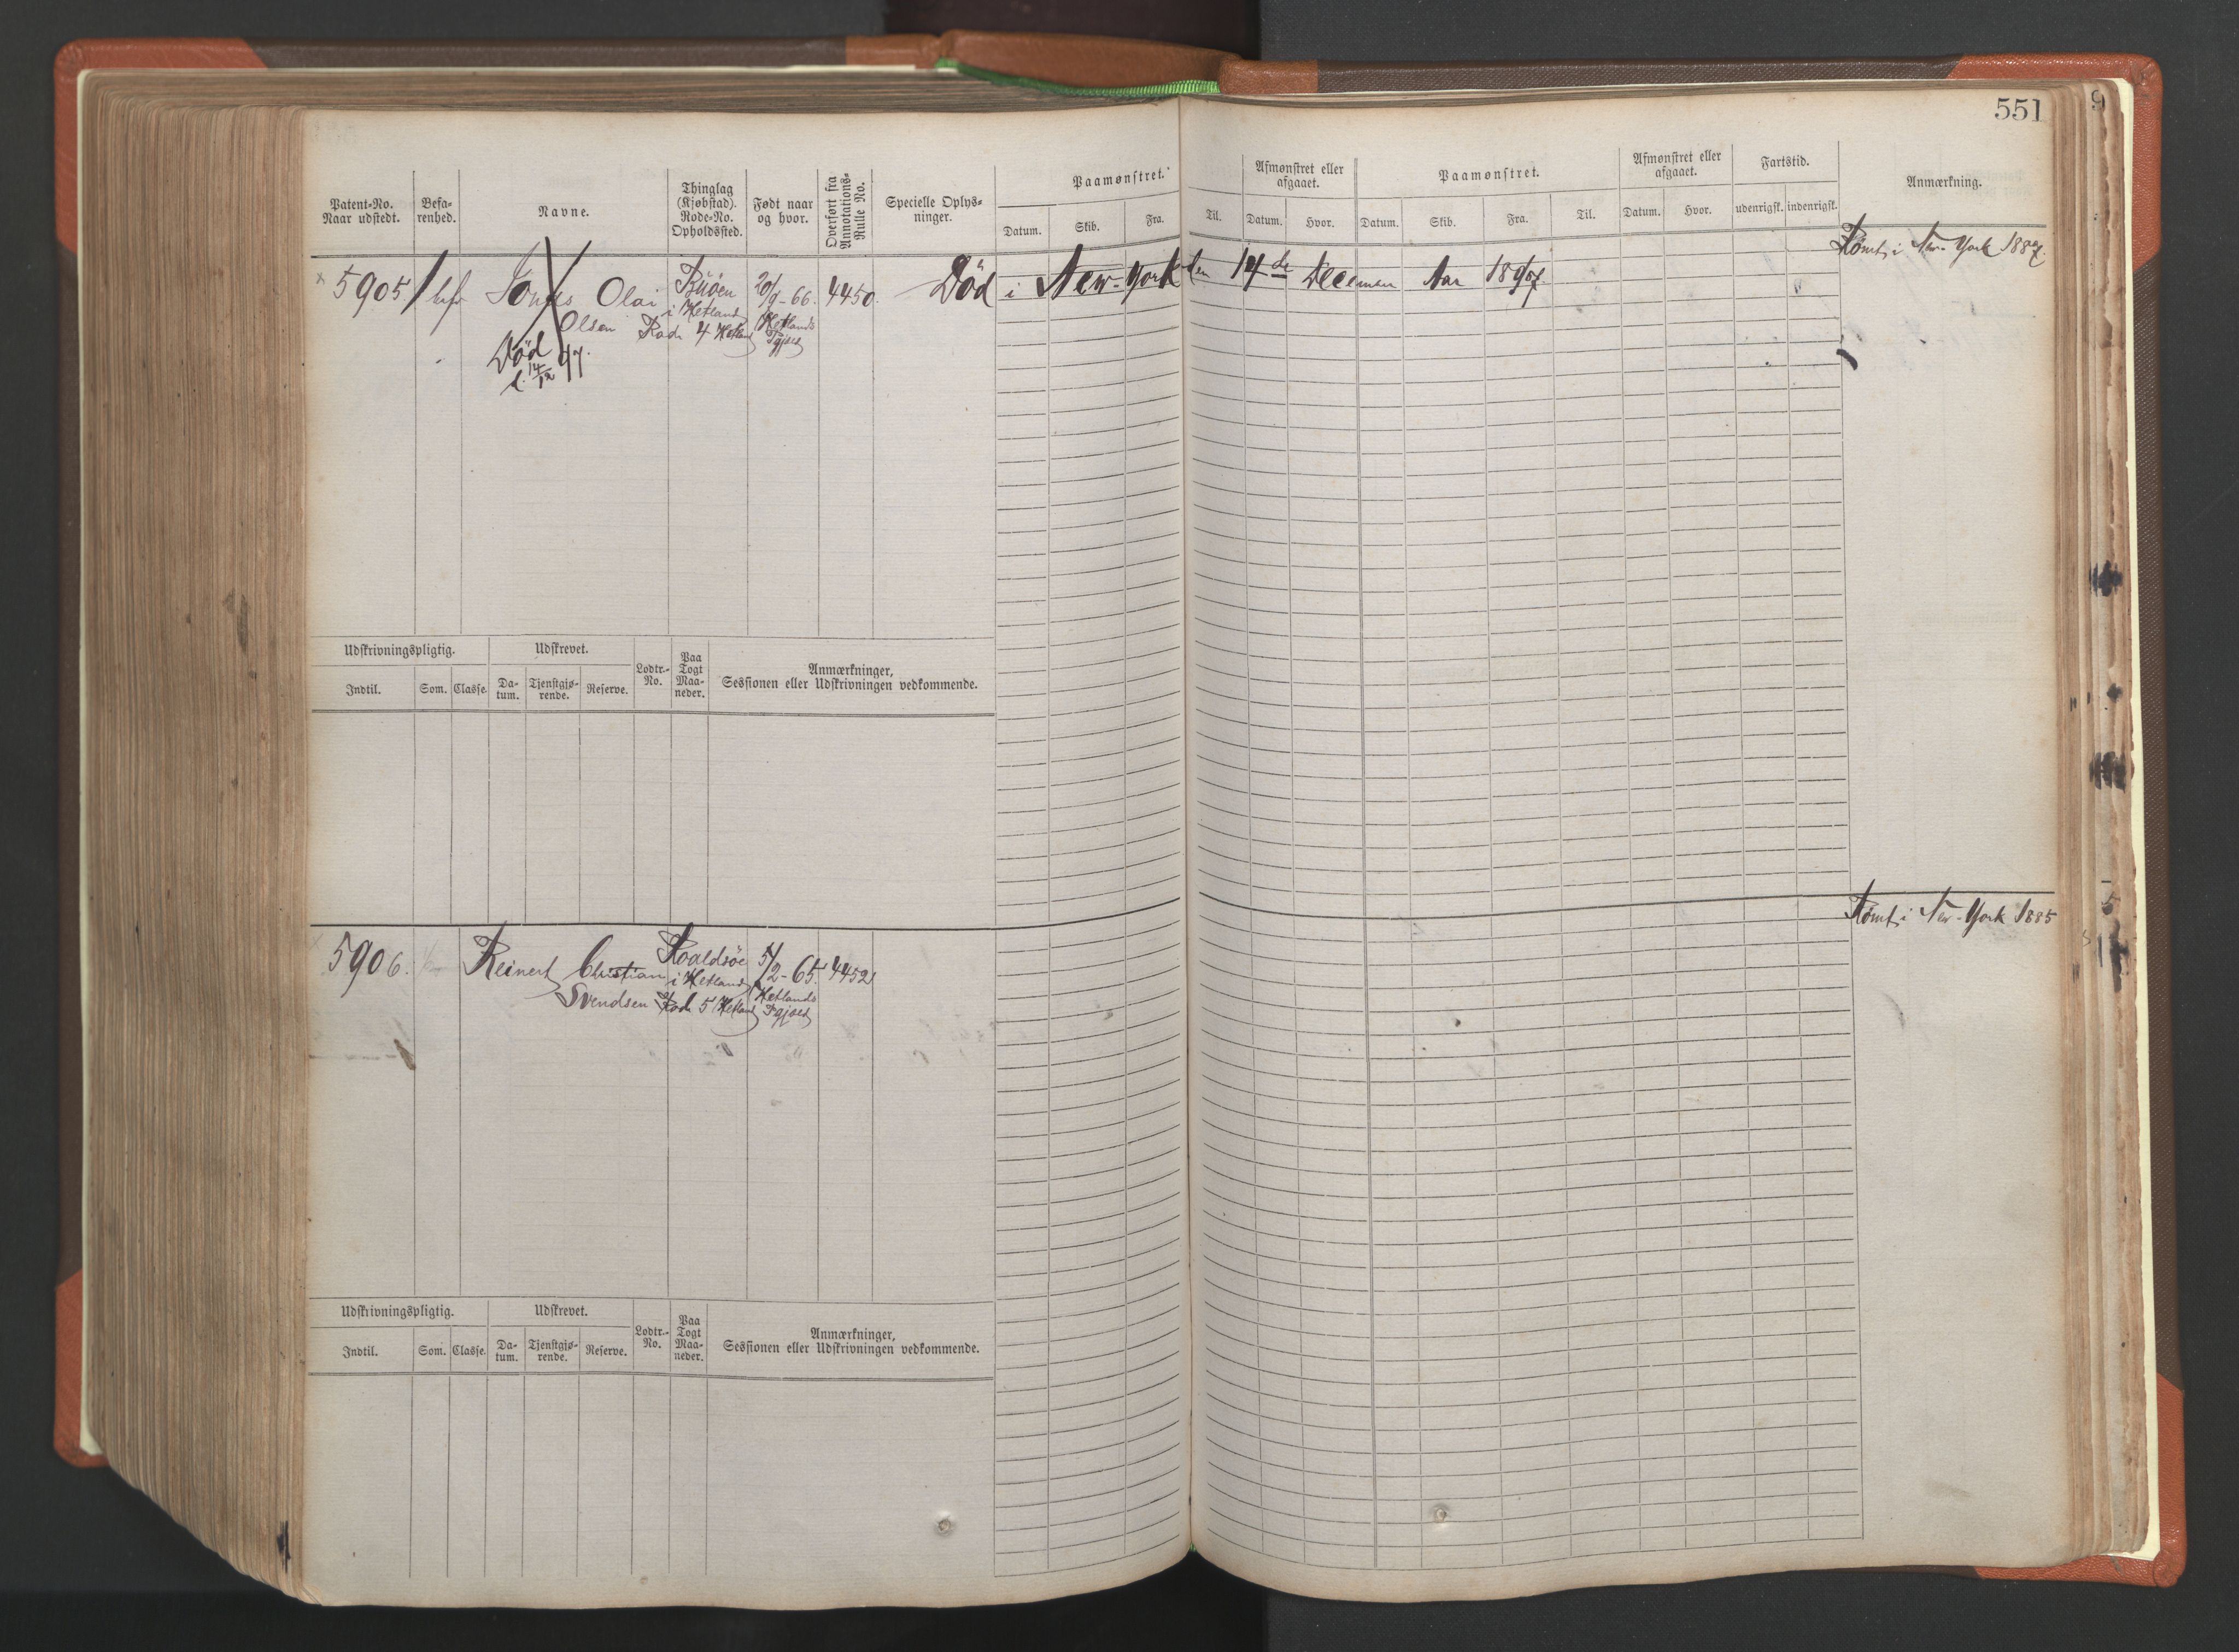 551
Patent-No.
Naar udstedt.
Befa-
renhed.
Navne.
Thinglag
(Kjøbstad).
Rode-No.
Opholdssted.
Født naar
og hvor.
Overført fra
Annotations-
Rulle No.
Specielle Oplys-
ninger.
Paamønstret.
Datum.
Skib.
Fra.
Til.
Afmønstret eller
afgaaet.
Datum.
Hvor.
Paamønstret.
Datum.
Skib.
Fra.
Til.
Afmønstret eller
afgaaet.
Datum.
Hvor.
Fartstid.
udenrigsk.
indenrigsk.
Anmærkning.
Rømt i New-York 1887.
5905
bef
Jonas Olai
Olsen
Død
d. 14/12 97.
Buøen
i Hetland
Rode 4 Hetland
20/9-66.
Hetlands
Pgjæld
4450.
Død i New-York den 14de Decemer Aar 1897.
Udskrivningspligtig.
Indtil.
Som.
Classe.
Udskrevet.
Da-
tum.
Tjenstgjø-
rende.
Reserve.
Lodtr.-
No.
Paa
Togt
Maa-
neder.
Anmærkninger,
Sessionen eller Udskrivningen vedkommende.
Rømt i New-York 1885
5906.
Reinert Christian
Svendsen
Roaldsøe
i Hetland
Rode 5 Hetland
5/2-65.
Hetlands
Pgjæld
4452
Udskrivningspligtig.
Indtil.
Som.
Classe.
Udskrevet.
Da-
tum.
Tjenstgjø-
rende.
Reserve.
Lodtr.-
No.
Paa
Togt
Maa-
neder.
Anmærkninger,
Sessionen eller Udskrivningen vedkommende.